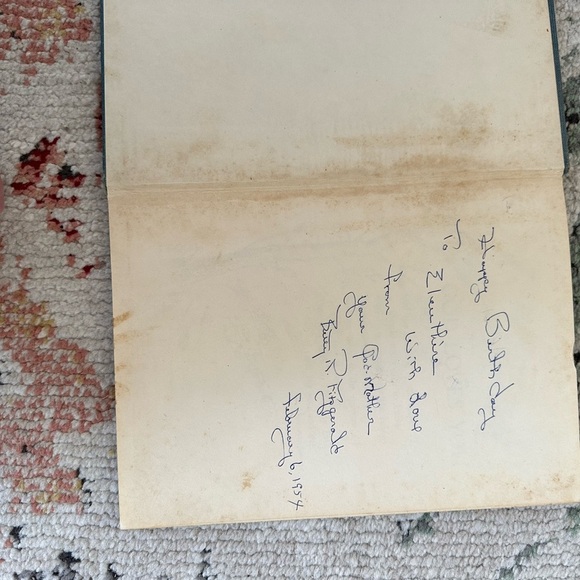 Happy Birthday
To Eleuthire
With Love
From
Your God-Mother
Betty R Fitzgerald
February 6, 1954